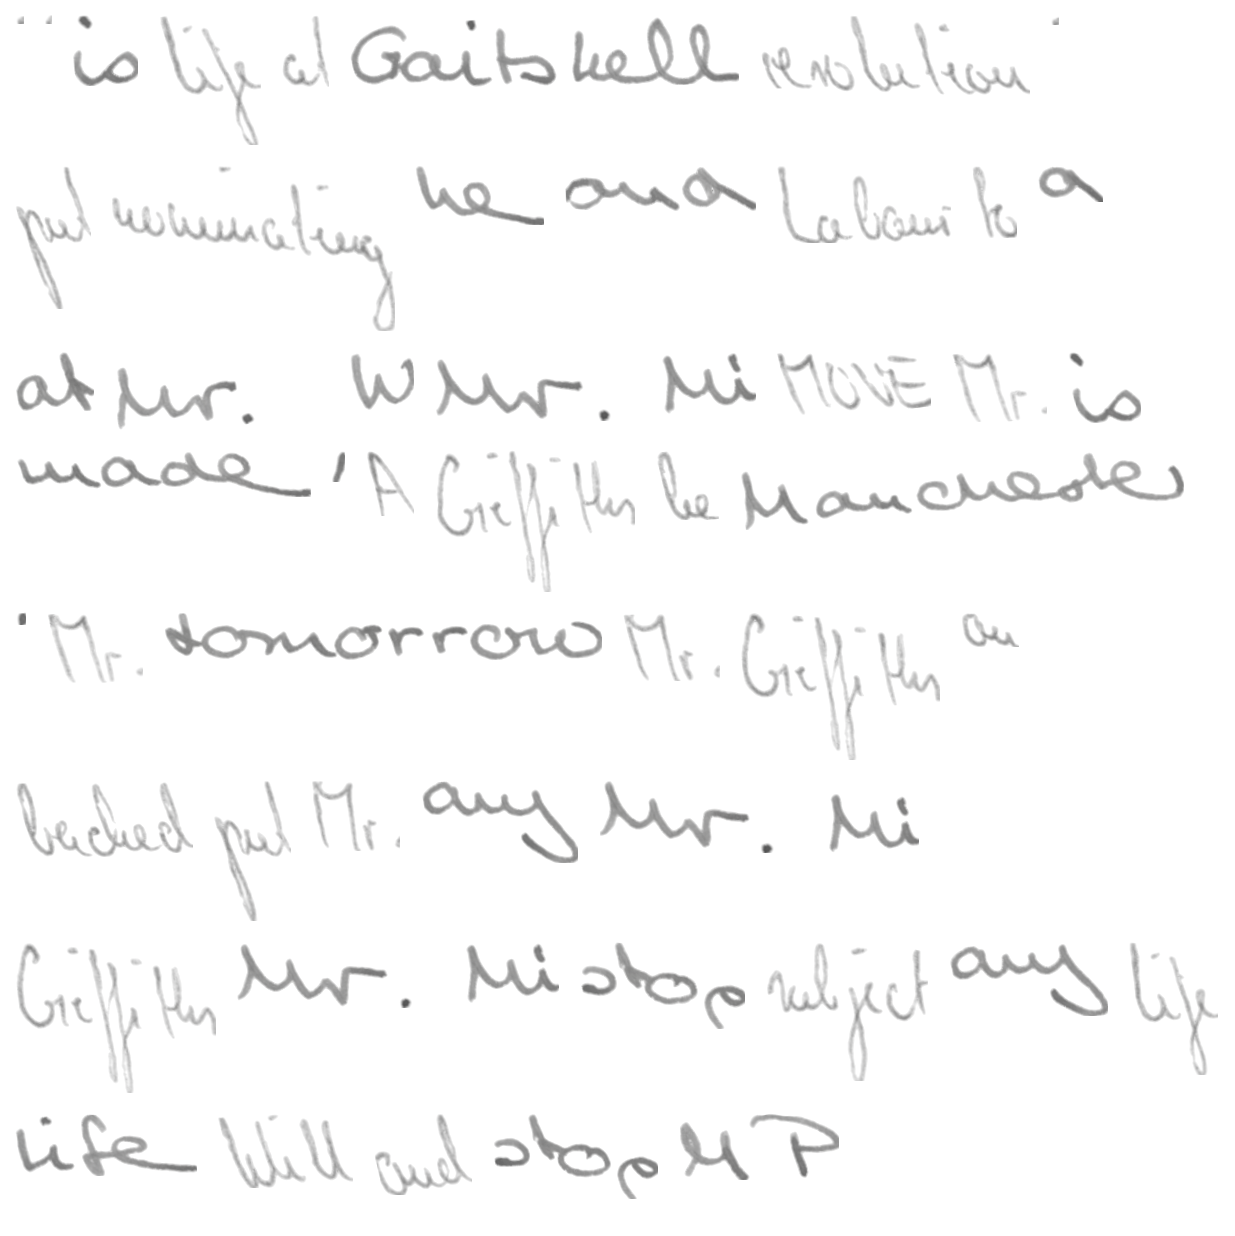 " is life at Gaitskell resolution '
put nominating he and Labour to a
at Mr. W Mr. Mi MOVE Mr. is
made ' A Griffiths be Manchester
' Mr. tomorrow Mr. Griffiths an
backed put Mr. any Mr. Mi
Griffiths Mr. Mi stop subject any life
life Will and stop M P